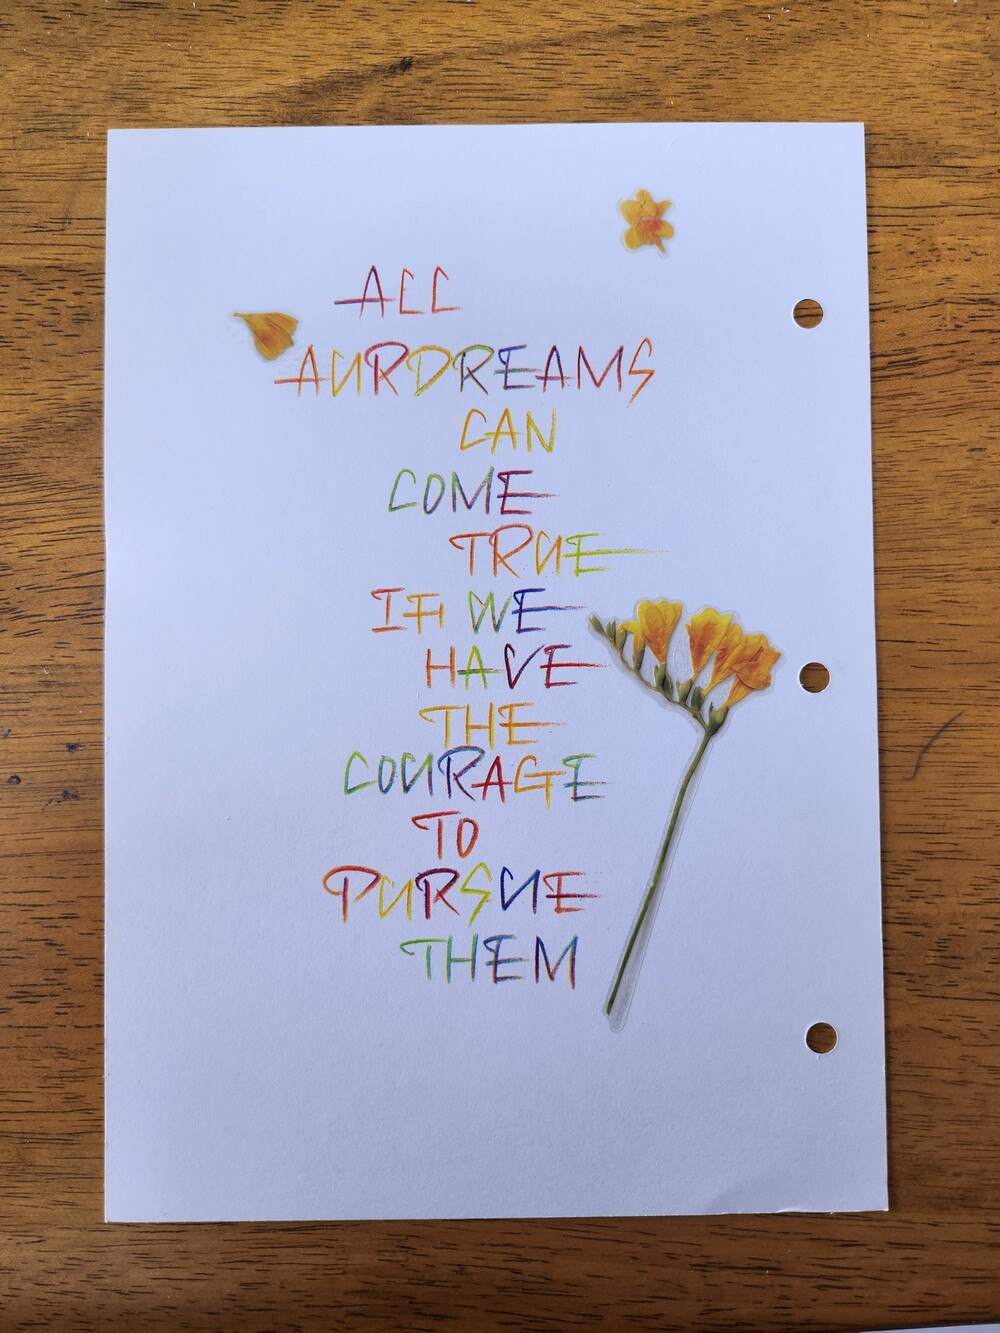 ALL
AURDREAMS
CAN
COME
TRUE
IF WE
HAVE
THE
COURAGE
TO
PURSUE
THEM